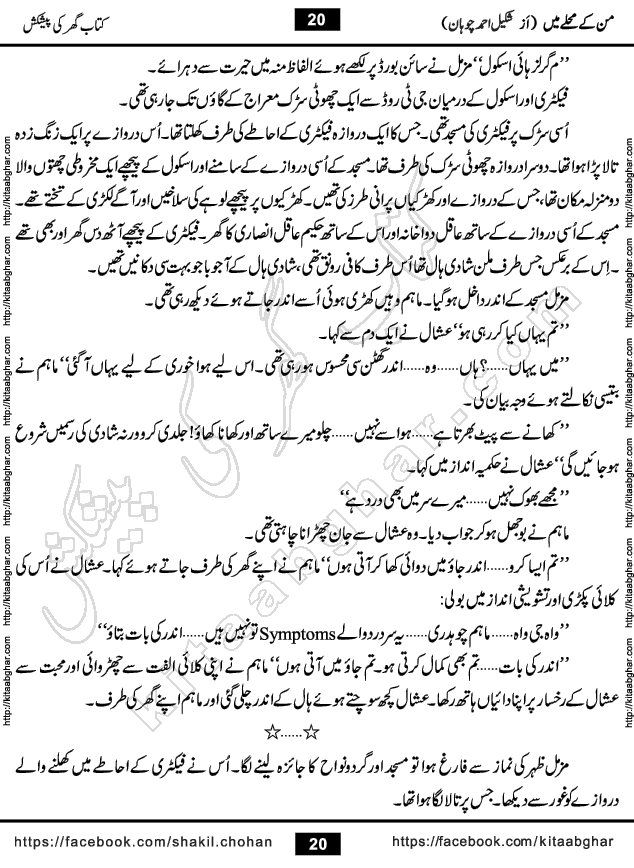 من کے محلے میں (از شکیل احمد چوہان)
20
کتاب گھر کی پیشکش
’’م گرلز ہائی اسکول‘‘ مزمل نے سائن بورڈ پر لکھے ہوئے الفاظ منہ میں حیرت سے دہرائے۔
فیکٹری اور اسکول کے درمیان جی ٹی روڈ سے ایک چھوٹی سڑک معراج کے گاؤں تک جا رہی تھی۔
اُسی سڑک پر فیکٹری کی مسجد تھی۔ جس کا ایک دروازہ فیکٹری کے احاطے کی طرف کھلتا تھا۔ اُس دروازے پر ایک زنگ زدہ
تالا پڑا ہوا تھا۔ دوسرا دروازہ چھوٹی سڑک کی طرف تھا۔ مسجد کے اُسی دروازے کے سامنے اور اسکول کے پیچھے ایک مخروطی چھتوں والا
دو منزلہ مکان تھا، جس کے دروازے اور کھڑکیاں پرانی طرز کی تھیں۔ کھڑکیوں پر پیچھے لوہے کی سلاخیں اور آگے لکڑی کے تختے تھے۔
مسجد کے اُسی دروازے کے ساتھ عاقل دواخانہ اور اس کے ساتھ حکیم عاقل انصاری کا گھر۔ فیکٹری کے پیچھے آٹھ دس گھر اور بھی تھے
۔ اِس کے برعکس جس طرف ملن شادی ہال تھا اُس طرف کافی رونق تھی، شادی ہال کے آجو باجو بہت سی دکانیں تھیں۔
مزمل مسجد کے اندر داخل ہوگیا۔ ماہم وہیں کھڑی ہوئی اُسے اندر جاتے ہوئے دیکھ رہی تھی۔
’’تم یہاں کیا کر رہی ہو‘‘ عشال نے ایک دم سے کہا۔
’’میں یہاں......؟ ہاں......وہ......اندر گھٹن سی محسوس ہو رہی تھی۔ اس لیے ہوا خوری کے لیے یہاں آگئی‘‘ ماہم نے
بتیسی نکالتے ہوئے وجہ بیان کی۔
’’کھانے سے پیٹ بھرتا ہے......ہوا سے نہیں......چلو میرے ساتھ اور کھانا کھاؤ! جلدی کرو ورنہ شادی کی رسمیں شروع
ہو جائیں گی‘‘ عشال نے حکمیہ انداز میں کہا۔
’’مجھے بھوک نہیں......میرے سر میں بھی درد ہے‘‘
ماہم نے بوجھل ہو کر جواب دیا۔ وہ عشال سے جان چھڑانا چاہتی تھی۔
’’تم ایسا کرو......اندر جاؤ میں دوائی کھا کر آتی ہوں‘‘ ماہم نے اپنے گھر کی طرف جاتے ہوئے کہا۔ عشال نے اُس کی
کلائی پکڑی اور تشویشی انداز میں بولی:
’’واہ جی واہ......ماہم چوہدری......یہ سر درد والے Symptoms تو نہیں ہیں......اندر کی بات بتاؤ‘‘
’’اندر کی بات......تم بھی کمال کرتی ہو۔ تم جاؤ میں آتی ہوں‘‘ ماہم نے اپنی کلائی الفت سے چھڑوائی اور محبت سے
عشال کے رخسار پر اپنا دایاں ہاتھ رکھا۔ عشال کچھ سوچتے ہوئے ہال کے اندر چلی گئی اور ماہم اپنے گھر کی طرف۔
☆......☆
مزمل ظہر کی نماز سے فارغ ہوا تو مسجد اور گرد و نواح کا جائزہ لینے لگا۔ اُس نے فیکٹری کے احاطے میں کھلنے والے
دروازے کو غور سے دیکھا۔ جس پر تالا لگا ہوا تھا۔
http://kitaabghar.com http://kitaabghar.com http://kitaabghar.com http://kitaabghar.com http://kitaabghar.com http://kitaabghar.com
http://kitaabghar.com http://kitaabghar.com http://kitaabghar.com http://kitaabghar.com http://kitaabghar.com http://kitaabghar.com
کتاب گھر کی پیشکش
kitaabghar.com
https://facebook.com/shakil.chohan
20
https://facebook.com/kitaabghar